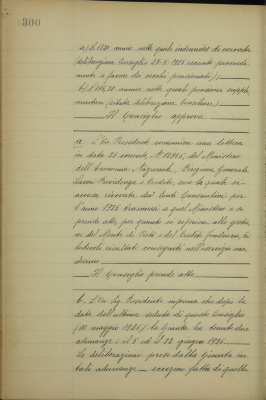 300
a) £ 1320 annue nette quale indennità di caroviveri
(deliberazione Consiglio 28.5.1925 recante provvedi-
menti a favore dei vecchi pensionati);
b) £ 186,20 annue nette quale pensione supple-
mentare (citata deliberazione Consiliare).
Il Consiglio approva
Il Sig. Presidente comunica una lettera
in data 25 corrente N° 12915, del Ministero
dell'Economia Nazionale, Direzione Generale
Lavoro Previdenza e Credito, con la quale si
accusa ricevuta dei Conti Consuntivi per
l'anno 1925 trasmessi a quel Ministero e si
prende atto, per quanto si riferisce alla gestio-
ne del Monte dei Paschi e del Credito Fondiario, dei
lodevoli risultati conseguiti nell'esercizio me-
desimo
Il Consiglio prende atto
L'On. Sig. Presidente informa che dopo la
data dell'ultima seduta di questo Consiglio
(10 maggio 1926) la Giunta ha tenuto due
adunanze: il 5 ed il 22 giugno 1926.
Le deliberazioni prese dalla Giunta in
tali adunanze – eccezion fatta di quelle